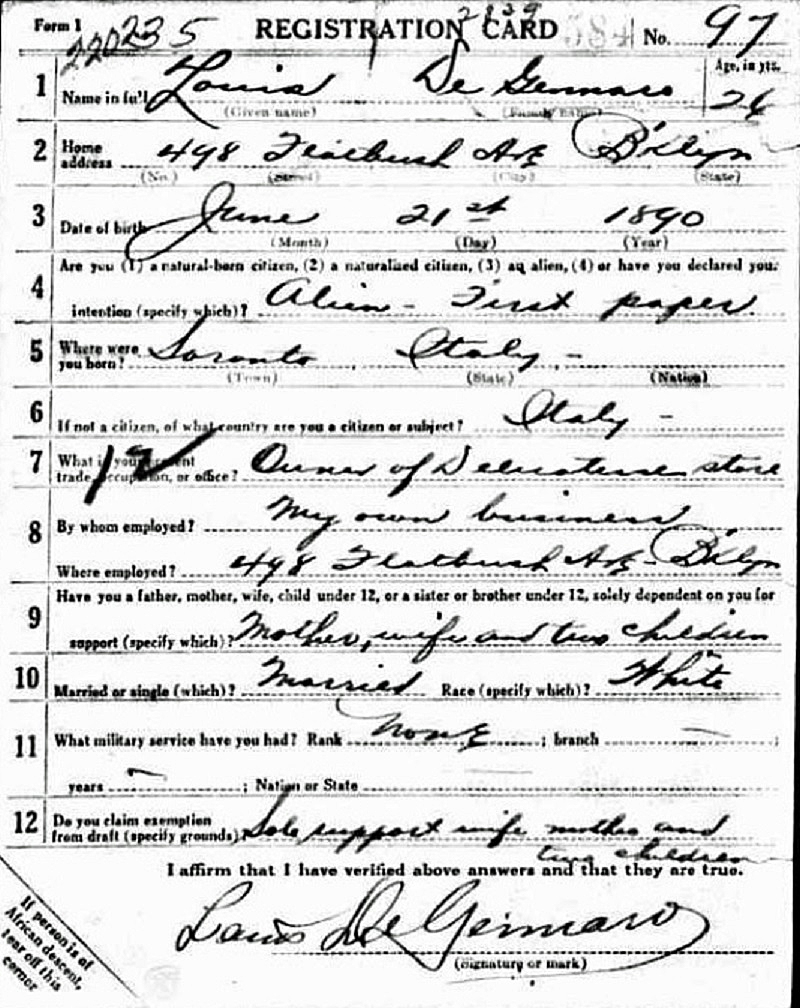 Form 1 REGISTRATION CARD No. 97
1 Name in full Louis De Gennaro Age, in yrs. 26
(Given name) (Family name)
2 Home address 498 Flatbush Ave B'klyn
(No.) (Street) (City) (State)
3 Date of birth June 21st 1890
(Month) (Day) (Year)
4 Are you (1) a natural-born citizen, (2) a naturalized citizen, (3) an alien, (4) or have you declared your
intention (specify which)? Alien - First paper
5 Where were you born? Soronto, Italy -
(Town) (State) (Nation)
6 If not a citizen, of what country are you a citizen or subject? Italy -
7 What is your present trade, occupation, or office? Owner of Delicatessen store
8 By whom employed? My own business
Where employed? 498 Flatbush Ave - B'klyn
9 Have you a father, mother, wife, child under 12, or a sister or brother under 12, solely dependent on you for
support (specify which)? Mother, wife and two children
10 Married or single (which)? Married Race (specify which)? White
11 What military service have you had? Rank None ; branch — ;
years — ; Nation or State —
12 Do you claim exemption from draft (specify grounds)? Sole support wife mother and
two children
I affirm that I have verified above answers and that they are true.
Louis De Gennaro
(Signature or mark)
If person is of
African descent,
tear off this
corner